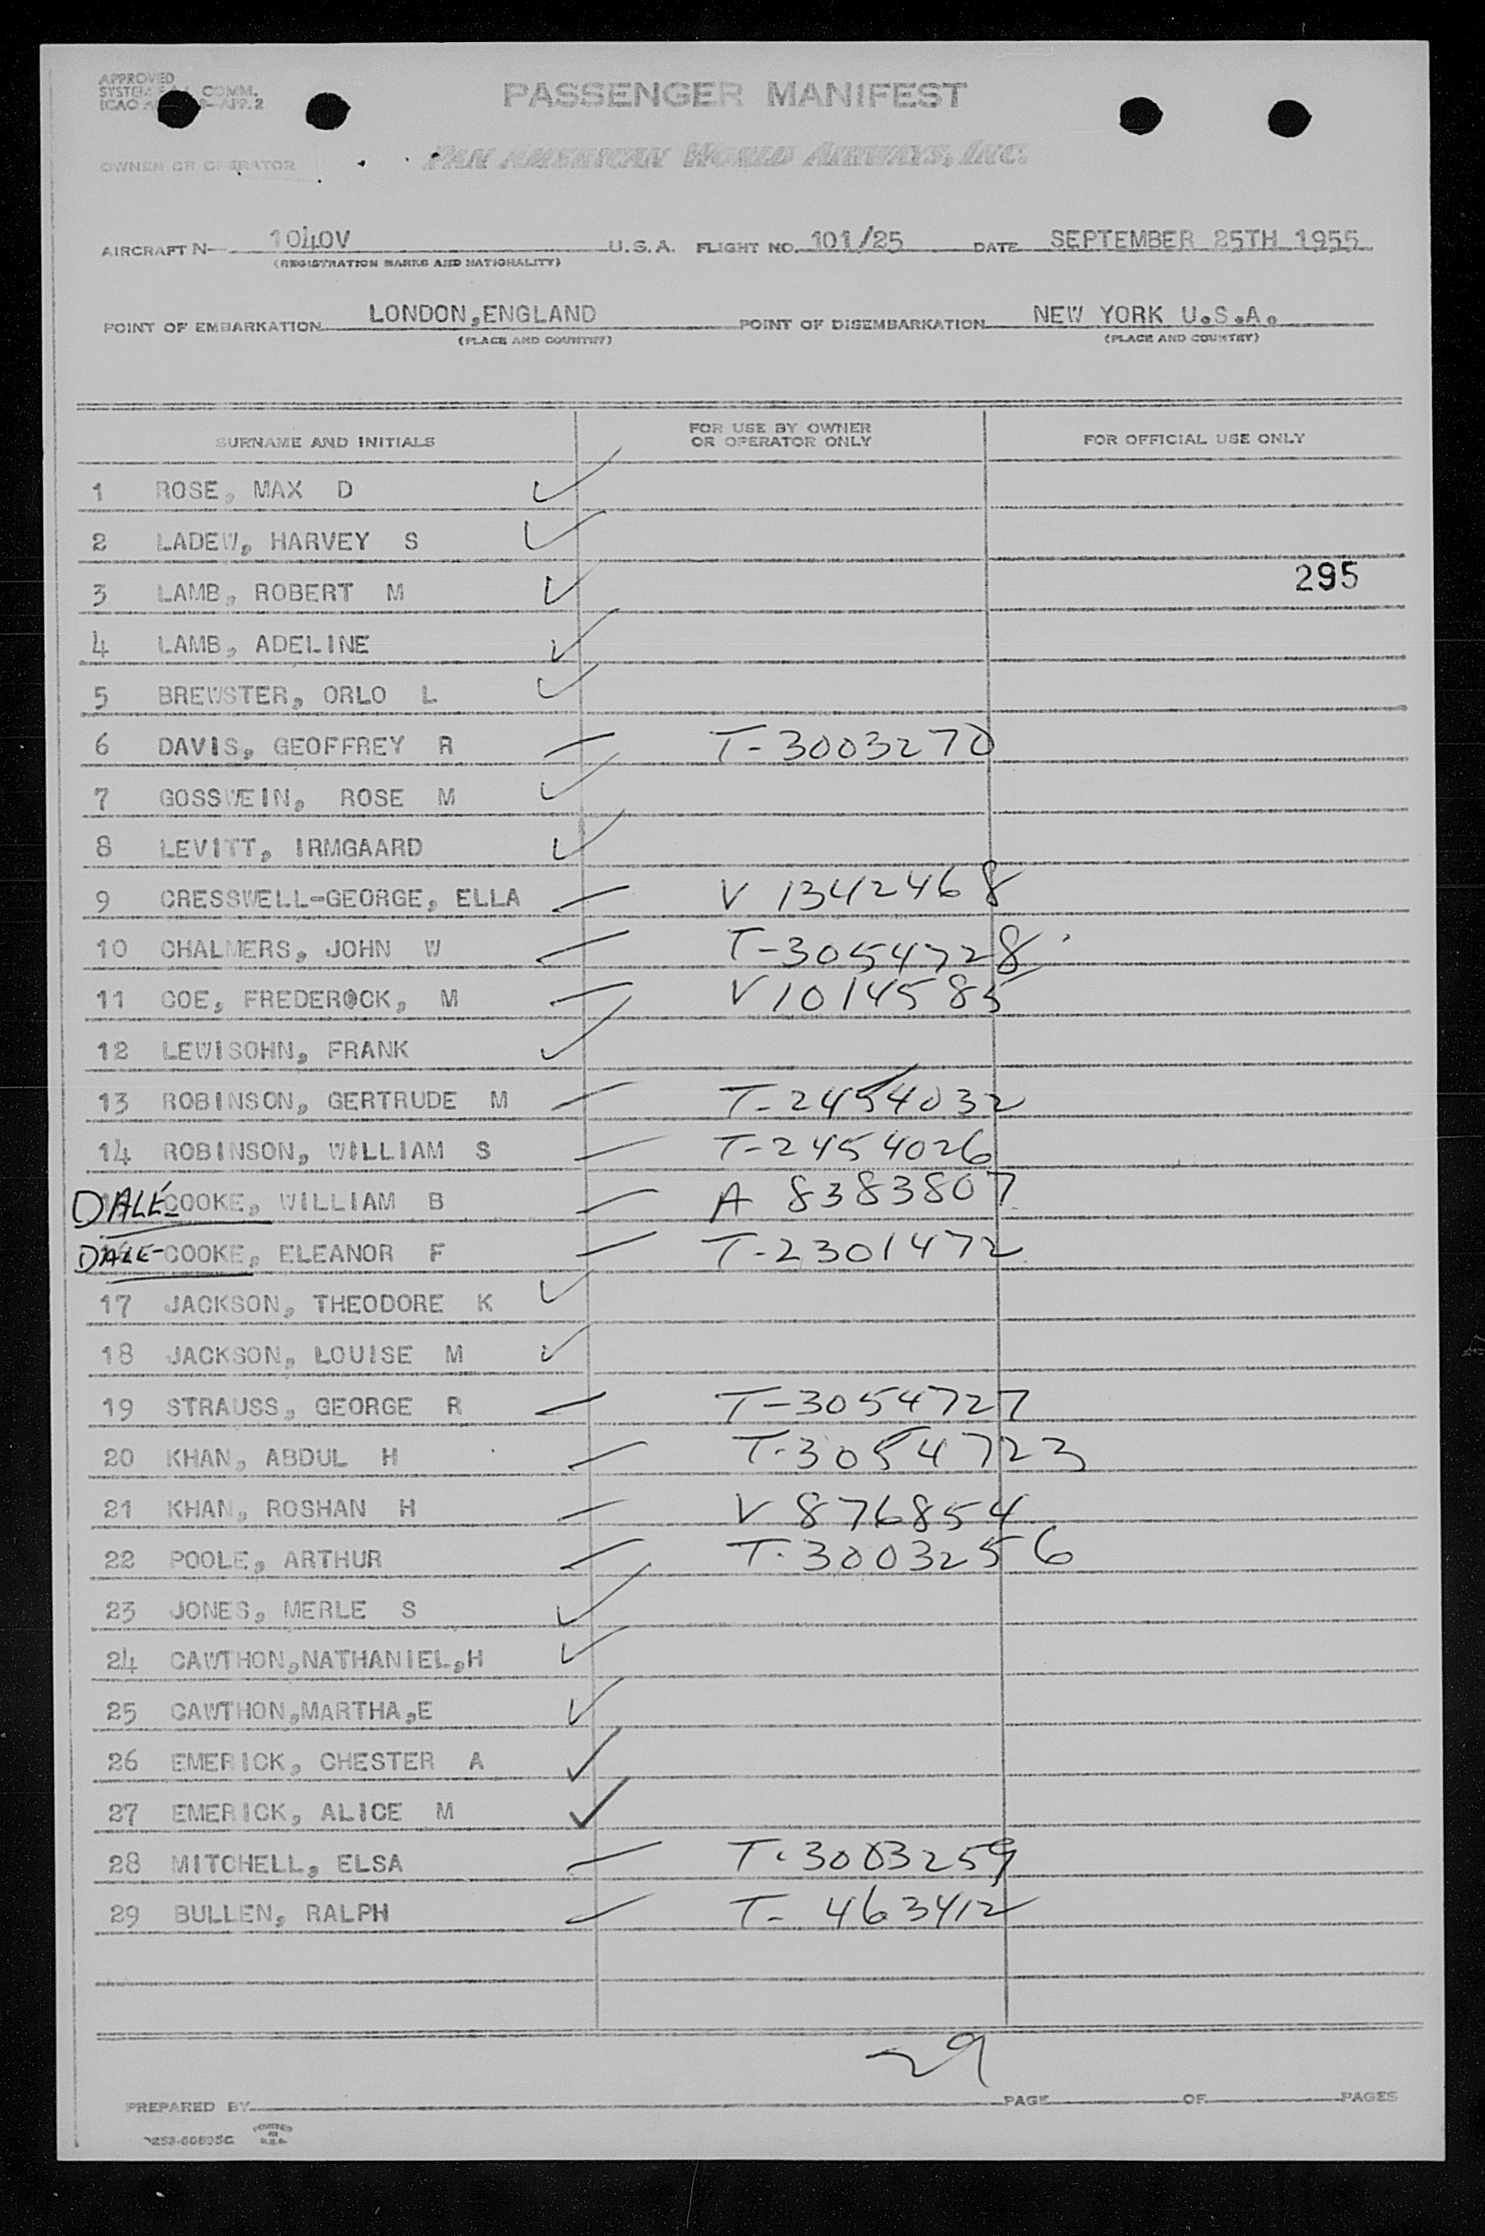 APPROVED
SYSTEM COMM.
ICAO APP. 2
PASSENGER MANIFEST
OWNER OR OPERATOR PAN AMERICAN WORLD AIRWAYS, INC.
AIRCRAFT N- 1040V U.S.A. FLIGHT NO. 101/25 DATE SEPTEMBER 25TH 1955
(REGISTRATION MARKS AND NATIONALITY)
POINT OF EMBARKATION LONDON,ENGLAND POINT OF DISEMBARKATION NEW YORK U.S.A.
(PLACE AND COUNTRY) (PLACE AND COUNTRY)
SURNAME AND INITIALS FOR USE BY OWNER OR OPERATOR ONLY FOR OFFICIAL USE ONLY
1 ROSE, MAX D ✓
2 LADEW, HARVEY S ✓
3 LAMB, ROBERT M ✓ 295
4 LAMB, ADELINE ✓
5 BREWSTER, ORLO L ✓
6 DAVIS, GEOFFREY R — T-3003270
7 GOSSWEIN, ROSE M ✓
8 LEVITT, IRMGAARD ✓
9 CRESSWELL-GEORGE, ELLA — V 1342468
10 CHALMERS, JOHN W — T-3054728
11 COE, FREDERICK, M — V 1014585
12 LEWISOHN, FRANK ✓
13 ROBINSON, GERTRUDE M — T-2454032
14 ROBINSON, WILLIAM S — T-2454026
DALE-COOKE, WILLIAM B — A 8383807
DALE-COOKE, ELEANOR F — T-2301472
17 JACKSON, THEODORE K ✓
18 JACKSON, LOUISE M ✓
19 STRAUSS, GEORGE R — T-3054727
20 KHAN, ABDUL H — T-3054723
21 KHAN, ROSHAN H — V 876854
22 POOLE, ARTHUR — T-3003256
23 JONES, MERLE S ✓
24 CAWTHON,NATHANIEL,H ✓
25 CAWTHON,MARTHA,E ✓
26 EMERICK, CHESTER A ✓
27 EMERICK, ALICE M ✓
28 MITCHELL, ELSA — T-3003259
29 BULLEN, RALPH — T- 463412
29
PREPARED BY PAGE OF PAGES
PRINTED IN U.S.A.